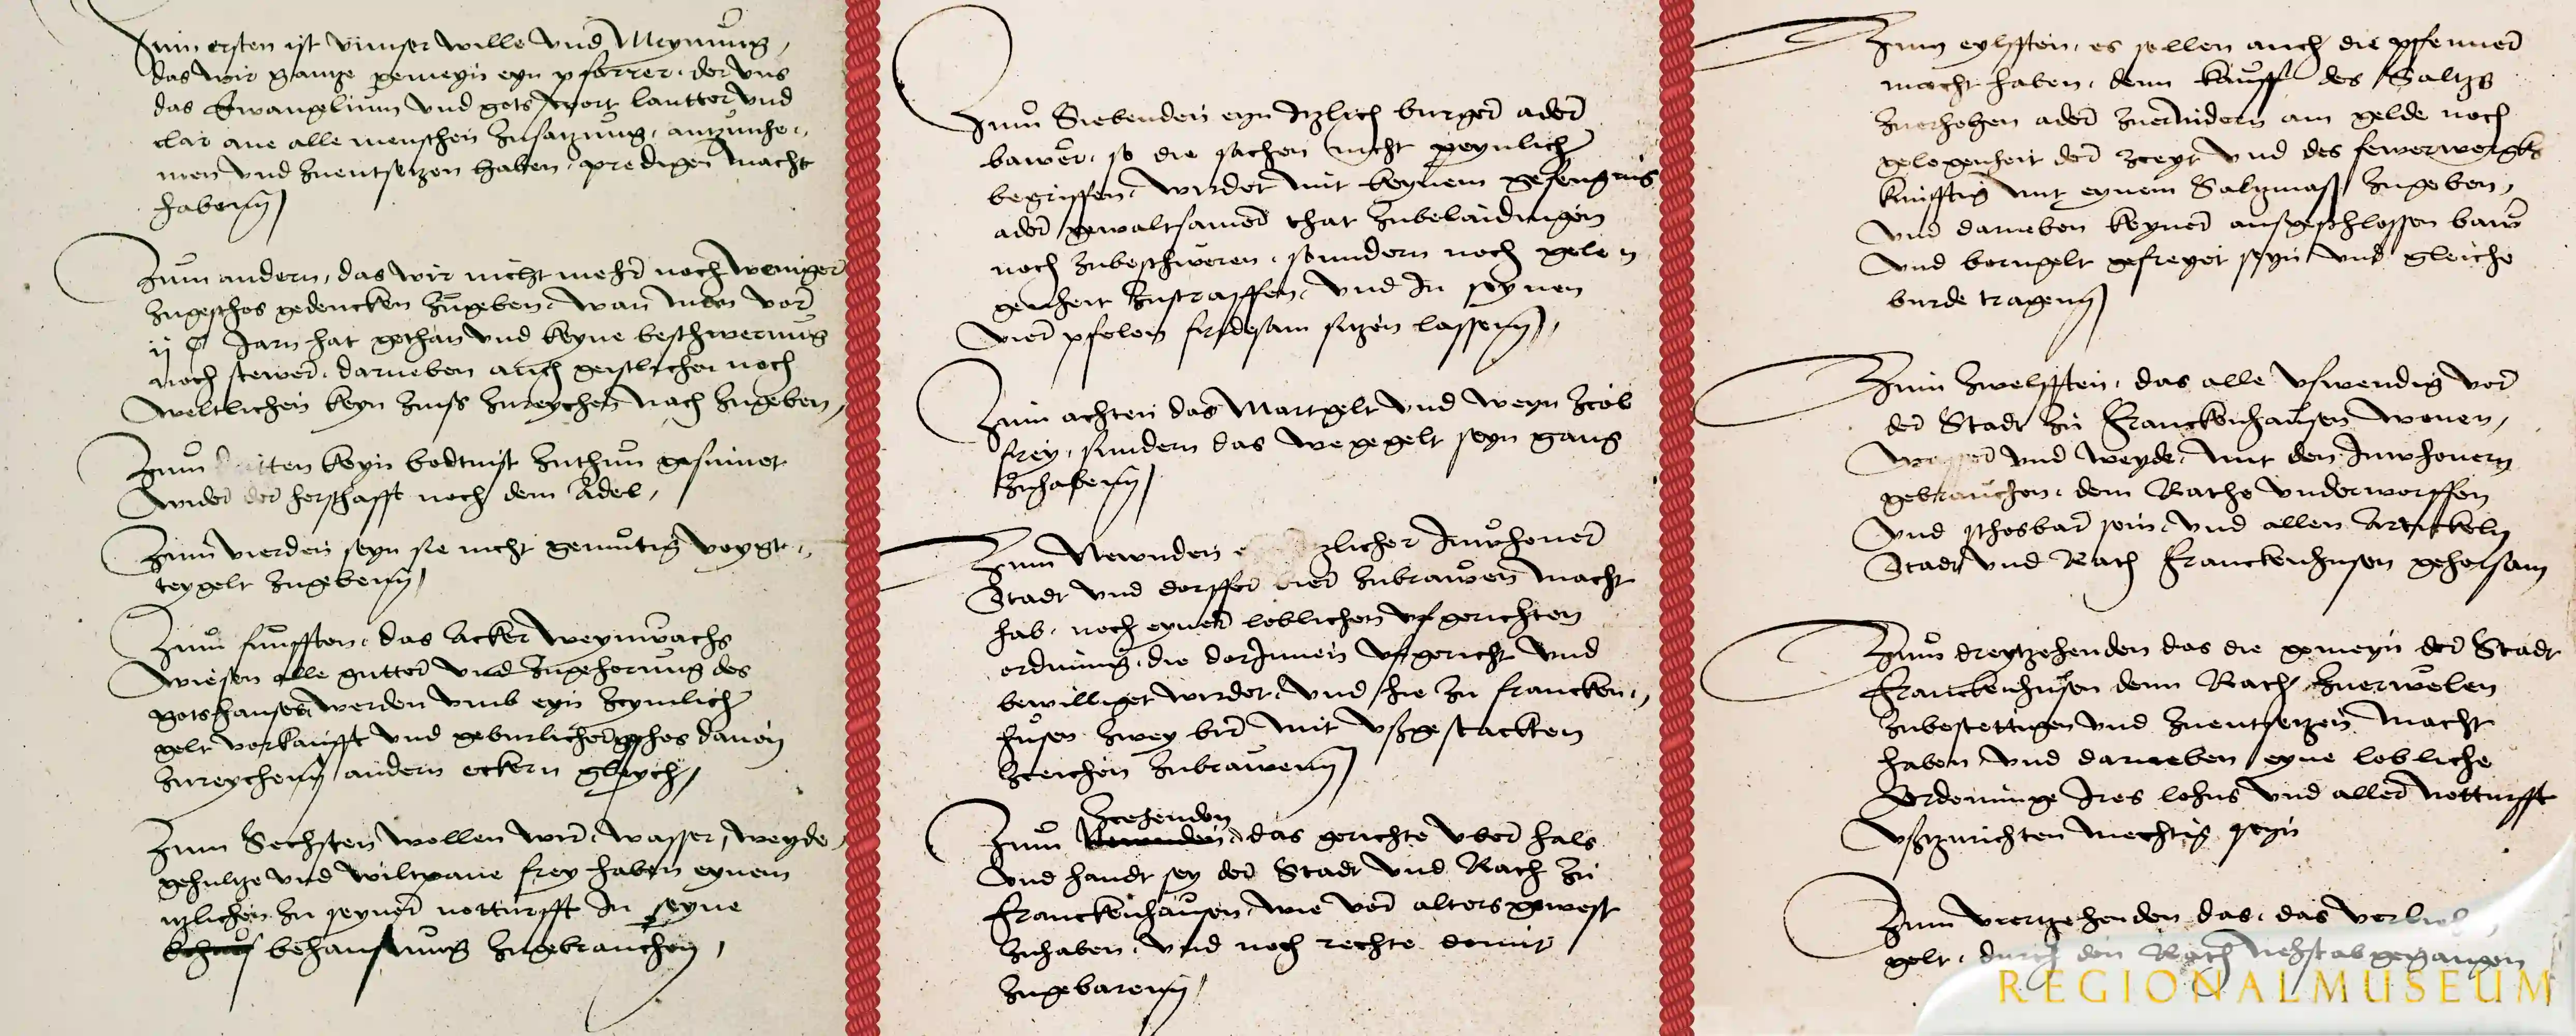 Zum ersten ist vnnser wille vnd Meynung,
das wir gantze gemeyn eyn pfarrer, der vns
das Ewangelium vnd gots wort lautter vnd
clar ane alle menschen zusatzung, antzuneh-
men vnd zuentsetzen haben, predigen macht
haben
Zum andern, das wir nicht mehr noch weniger
zugeschos gedencken zugeben, wan men vor
ij C Jarn hat gethan vnd keyne beschwerung
noch stewer, darneben auch geistlichen noch
weltlichen keyn zinss zureychen nach zugeben,
Zum itten keyn bodtnist zuthun gesinnet
wider der herschafft noch dem Adel,
Zum vierden seyn sie nicht gemutig voygt-
teygelt zugeben
Zum funfften, das Acker weynwachs
wiesen alle gutter vnd zugehorung des
gotshauses werden vmb eyn zcymlich
gelt vorkaufft vnd geburlicher geschos dauon
zureychen andern eckern gleych,
Zum Sechsten wollen wir, wasser, weyde,
gehultze vnd wiltpane frey haben eynem
itzlichen zu seyner notturfft In seyne
behausung zugebrauchen,
Zum Siebenden eyn Itzlich burger ader
bawer, so die sachen nicht peynlich
begriffen, wirdet mit keynem gefengnis
ader gewaltsamer that zubelaidingen
noch zubeschweren, sundern noch gele
genheit zustraffen, vnd In seynen
vier pfelen fridesam sitzen lassen,
Zum achten das Martgelt vnd weyn zcol
frey, sundern das wegegelt seyn gang
zuhaben
Zum Newnden e tzlicher Inwhoner
Stadt vnd dorffer bier zubrawen macht
hab, noch eyner loblichen vfgerichten
ordnung, die dorInnen vfgericht vnd
bewilliget wirdet, vnd hie zu francken-
husen zwey bir mit vßgestackten
zceichen zubrawen
Zcehenden
Zum Newnden, das gerichte vber hals
vnd handt sey der Stadt vnd Rath zu
Franckenhausen, wie vor alters gewest
zuhaben, vnd noch rechte domit
zugebaren
Zum eylfften, es sollen auch die pfenner
macht haben, denn kauff des Saltzs
zuerhohen ader zuernidern am gelde noch
gelegenheit der zceyt vnd des fewerwergks
kunfftig mit eynem Saltzmaß zugeben,
vnd darneben keyner ausgeschlossen baw
vnd borngelt gefreyet seyn vnd gleiche
burde tragen
Zum Zwelfften, das alle vswendig vor
der Stadt zu Franckenhausen wonen,
wasser vnd weyde, mit den Inwhonern
gebrauchen, dem Rathe vnderworffen
vnd schosbar sein, vnd allen Artickeln
Stadt vnd Rath Franckenhusen gehorsam
Zum dreytzehenden das die gemeyn der Stadt
Franckenhusen denn Rath zuerwelen
zubestettigen vnd zuentsetzen macht
haben vnd darneben eyne lobliche
Ordenunge Ires lohns vnd aller notturfft
vßtzurichten mechtig seyn
Zum viertzehenden das, das
gelt, durch den Rath nehst abgegangen
REGIONALMUSEUM